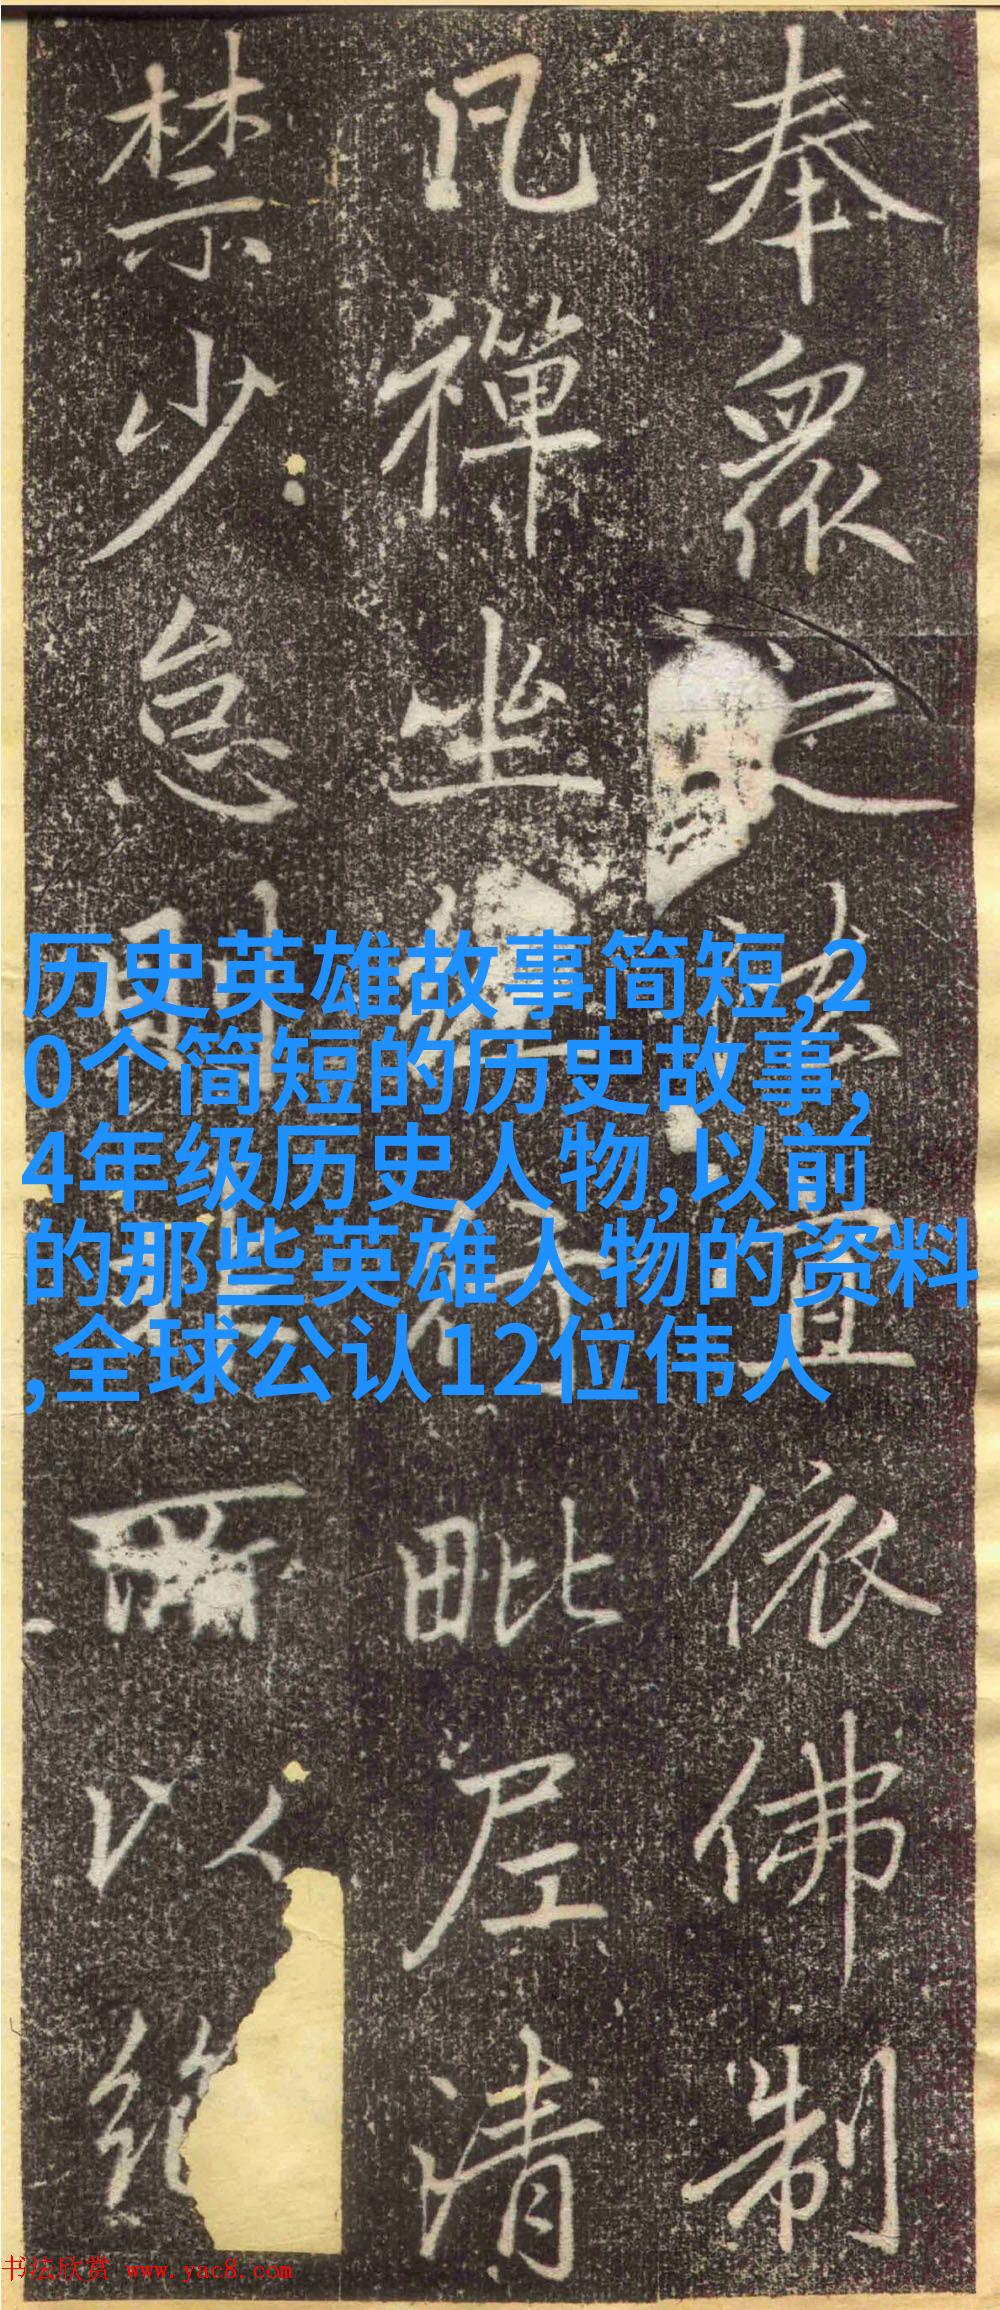 奉眾之法宜依佛制
凡禪坐
行毗尼清
禁少怠則
以絶
历史英雄故事简短,2
0个简短的历史故事,
4年级历史人物,以前
的那些英雄人物的资料
,全球公认12位伟人
书法欣赏 www.yac8.com